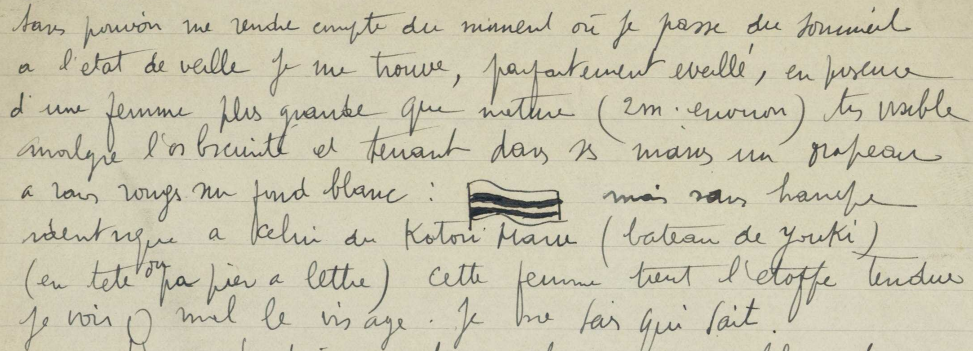 sans pouvoir me rendre compte du moment où je passe du sommeil
a l'état de veille je me trouve, parfaitement eveillé, en presence
d'une femme plus grande que nature (2m. environ) tres visible
malgre l'obscurité et tenant dans ses mains un drapeau
a raies rouges sur fond blanc : mais sans hampe
identique a celui du Kotori Maru (bateau de youki)
(en tete du papier a lettre) cette femme tient l'étoffe tendue
je vois mal le visage. Je ne sais qui